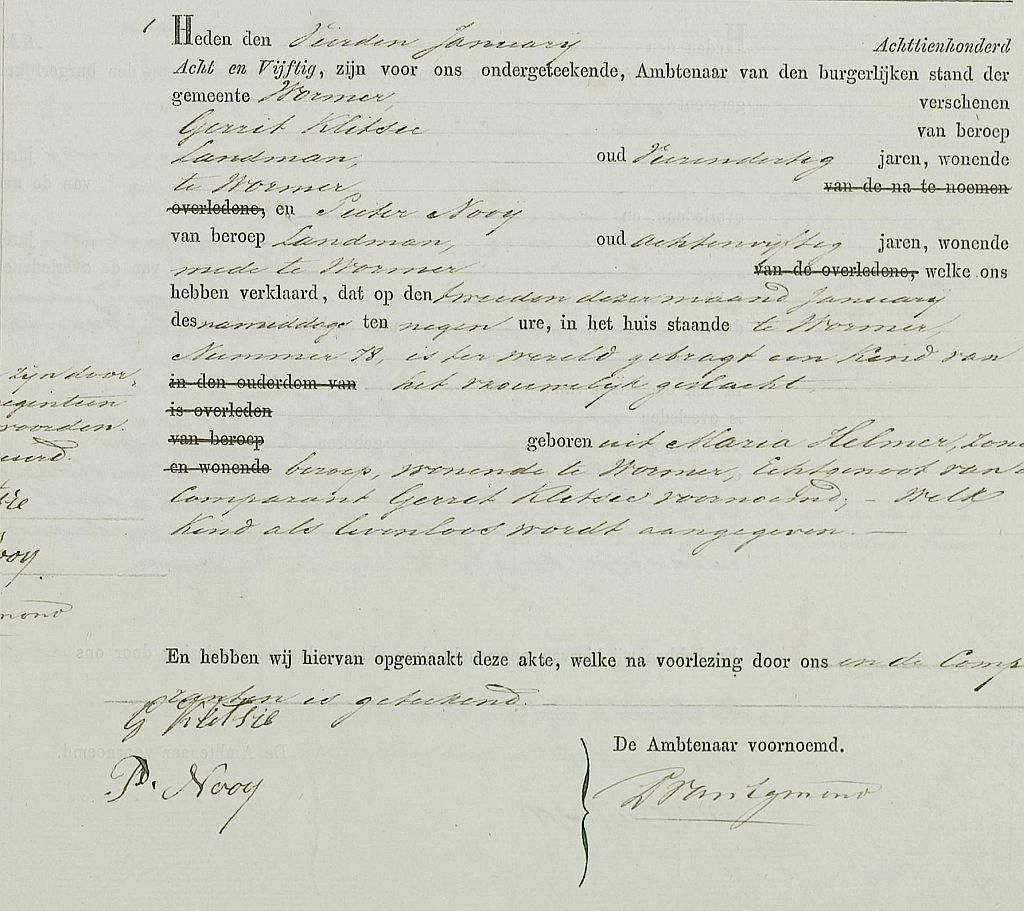 1 Heden den Vierden January Achttienhonderd
Acht en Vijftig, zijn voor ons ondergeteekende, Ambtenaar van den burgerlijken stand der
gemeente Wormer, verschenen
Gerrit Klitsie van beroep
Landman, oud Vierendertig jaren, wonende
te Wormer van de na te noemen
overledene, en Pieter Nooy
van beroep Landman, oud achtenvyftig jaren, wonende
mede te Wormer van de overledene, welke ons
hebben verklaard, dat op den tweeden dezer maand January
des namiddags ten negen ure, in het huis staande te Wormer,
Nummer 78, is ter wereld gebragt een kind van
in den ouderdom van het vrouwelyk geslacht
is overleden
van beroep geboren uit Maria Helmer, zond
en wonende beroep, wonende te Wormer, Echtgenoot van
Comparant Gerrit Klitsie voornoemd; – Welk
Kind als levenloos wordt aangegeven. —
zijn door
woorden.
sie
ooy
mond
En hebben wij hiervan opgemaakt deze akte, welke na voorlezing door ons en de Comp
ranten is geteekend.
G Klitsie
De Ambtenaar voornoemd.
P. Nooy